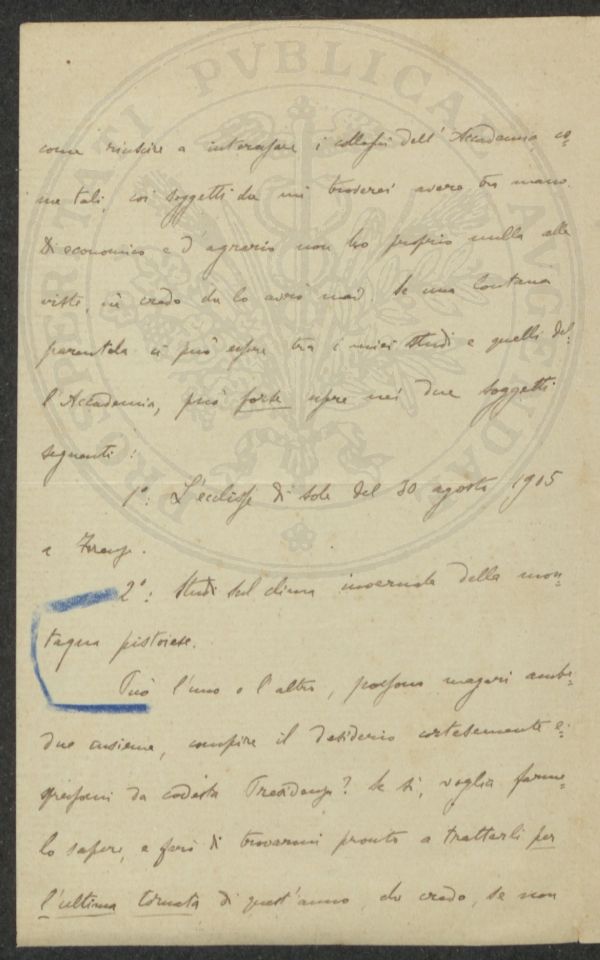 come riuscire a interessare i colleghi dell'Accademia, co=
me tali, coi soggetti da mi troverei avere tra mano.
Di economico e d'agrario non ho proprio nulla alle
viste, nè credo che lo avrò mai. Se una lontana
parentela ci può essere tra i miei studi e quelli del=
l'Accademia, può forse essere nei due soggetti
seguenti:
1º: L'eclisse di sole del 30 agosto 1905
a Firenze.
2º: Studi sul clima invernale della mon=
tagna pistoiese.
Può l'uno o l'altro, possono magari ambe=
due insieme, compire il desiderio cortesemente e=
spressomi da codesta Presidenza? Se sì, voglia farme=
lo sapere, e farò di trovarmi pronto a trattarli per
l'ultima tornata di quest'anno, che credo, se non
PROSPERITATI PUBLICAE AUGENDAE